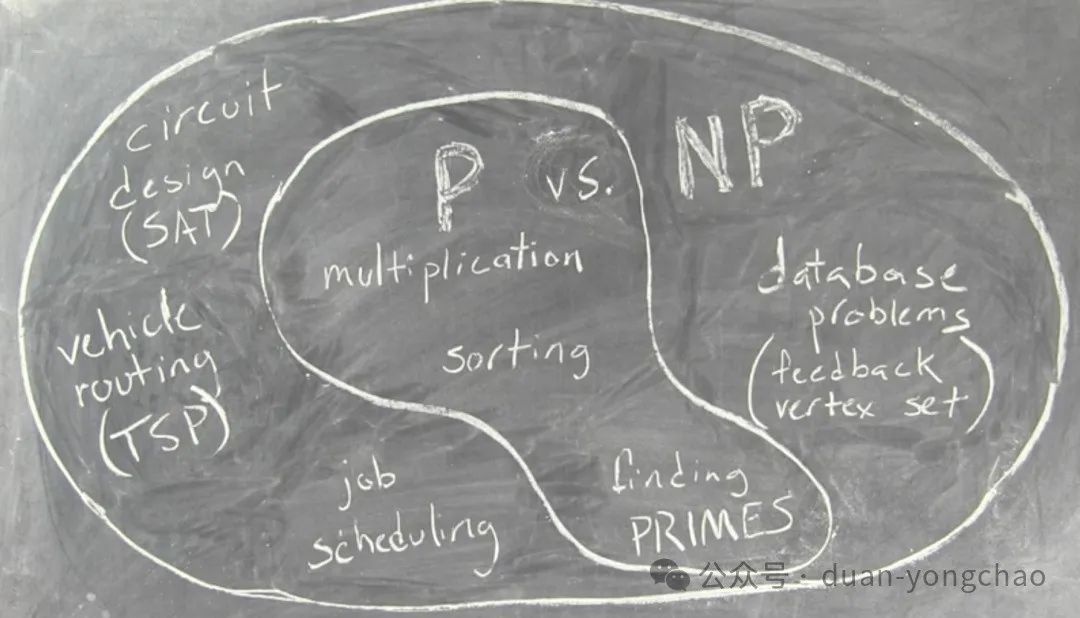 circuit
design
(SAT)
P vs. NP
multiplication
sorting
vehicle
routing
(TSP)
database
problems
(feedback
vertex set)
job
scheduling
finding
PRIMES
公众号 · duan-yongchao